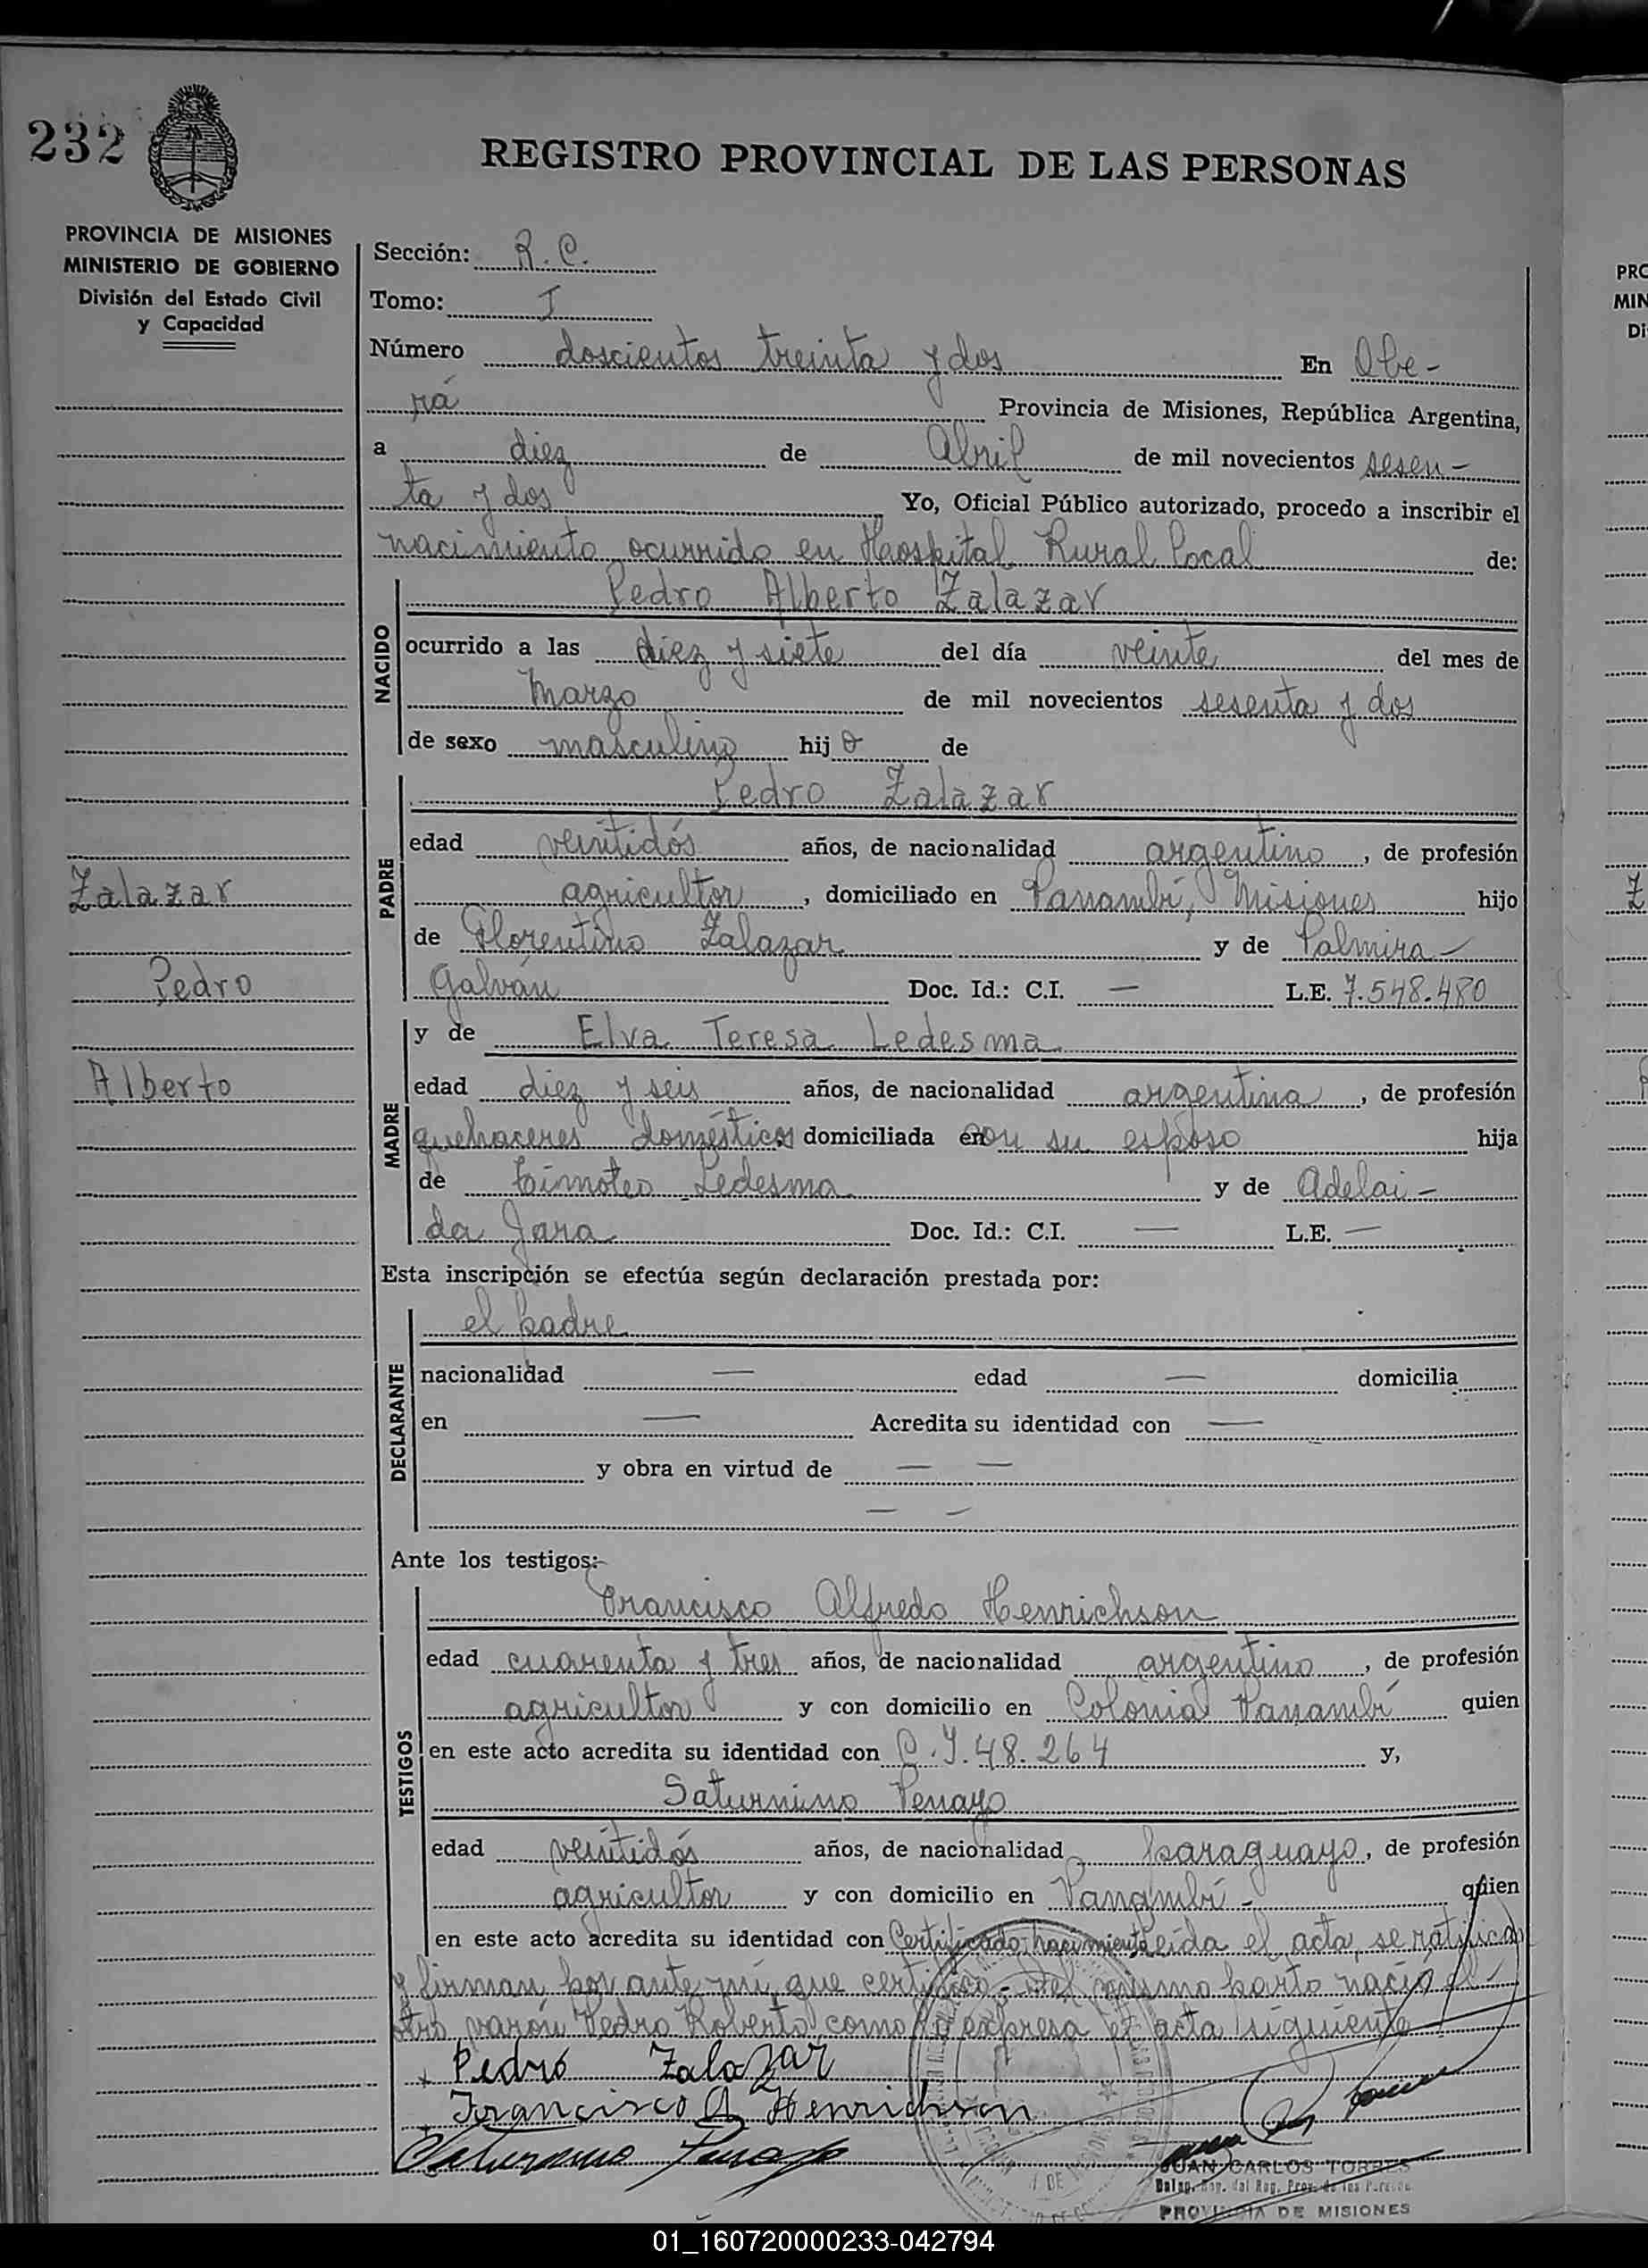 232
REGISTRO PROVINCIAL DE LAS PERSONAS
PROVINCIA DE MISIONES
MINISTERIO DE GOBIERNO
División del Estado Civil
y Capacidad
Sección: R. C.
Tomo: I
Número doscientos treinta y dos En Obe-
rá Provincia de Misiones, República Argentina,
a diez de Abril de mil novecientos sesen-
ta y dos Yo, Oficial Público autorizado, procedo a inscribir el
nacimiento ocurrido en Hospital Rural Local de:
NACIDO
Pedro Alberto Zalazar
ocurrido a las diez y siete del día veinte del mes de
Marzo de mil novecientos sesenta y dos
de sexo masculino hijo de
PADRE
Pedro Zalazar
edad veintidós años, de nacionalidad argentino, de profesión
agricultor, domiciliado en Panambí, Misiones hijo
de Florentino Zalazar y de Palmira
Galván Doc. Id.: C.I. — L.E. 7.548.480
Zalazar
Pedro
Alberto
MADRE
y de Elva Teresa Ledesma
edad diez y seis años, de nacionalidad argentina, de profesión
quehaceres domésticos domiciliada en con su esposo hija
de Timoteo Ledesma y de Adelai-
da Jara Doc. Id.: C.I. — L.E. —
Esta inscripción se efectúa según declaración prestada por:
DECLARANTE
el padre
nacionalidad — edad — domicilia
en — Acredita su identidad con —
y obra en virtud de — —
— —
Ante los testigos:
TESTIGOS
Francisco Alfredo Henrichson
edad cuarenta y tres años, de nacionalidad argentino, de profesión
agricultor y con domicilio en Colonia Panambí quien
en este acto acredita su identidad con C.I. 48.264 y,
Saturnino Penayo
edad veintidós años, de nacionalidad paraguayo, de profesión
agricultor y con domicilio en Panambí - quien
en este acto acredita su identidad con Certificado nacimiento leida el acta, se ratifican
y firman por ante mí, que certifico.- Del mismo parto nació el
otro varón Pedro Roberto, como lo expresa el acta siguiente
Pedro Zalazar
Francisco A Henrichson
Saturnino Penayo
JUAN CARLOS TORRES
PROVINCIA DE MISIONES
PRO
MIN
Di
01_160720000233-042794